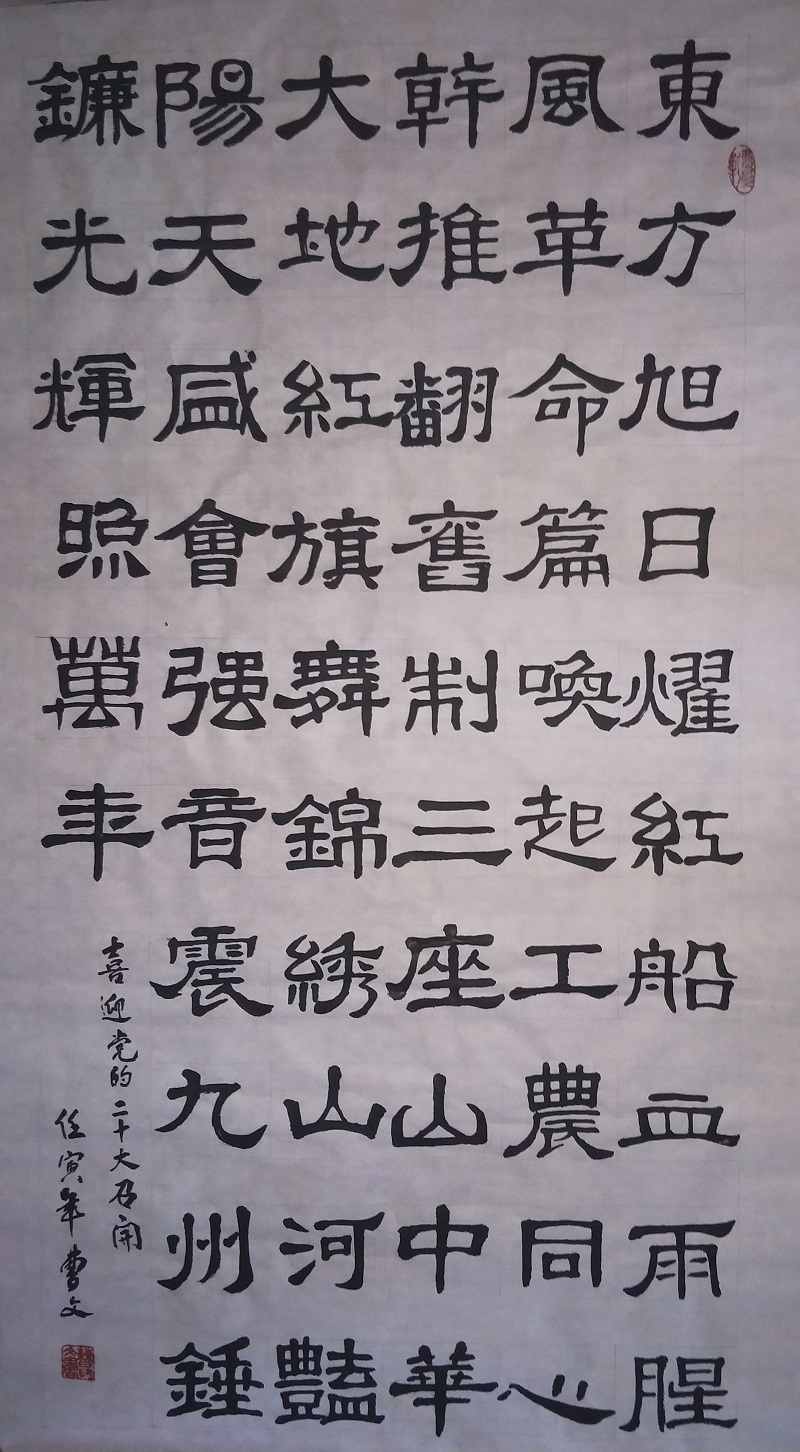 東方旭日燿紅船血雨腥
風革命篇喚起工農同心
幹推翻舊制三座山中華
大地紅旗舞錦綉山河豔
陽天盛會强音震九州錘
鐮光輝照萬年
喜迎党的二十大召開
任寅年曹文